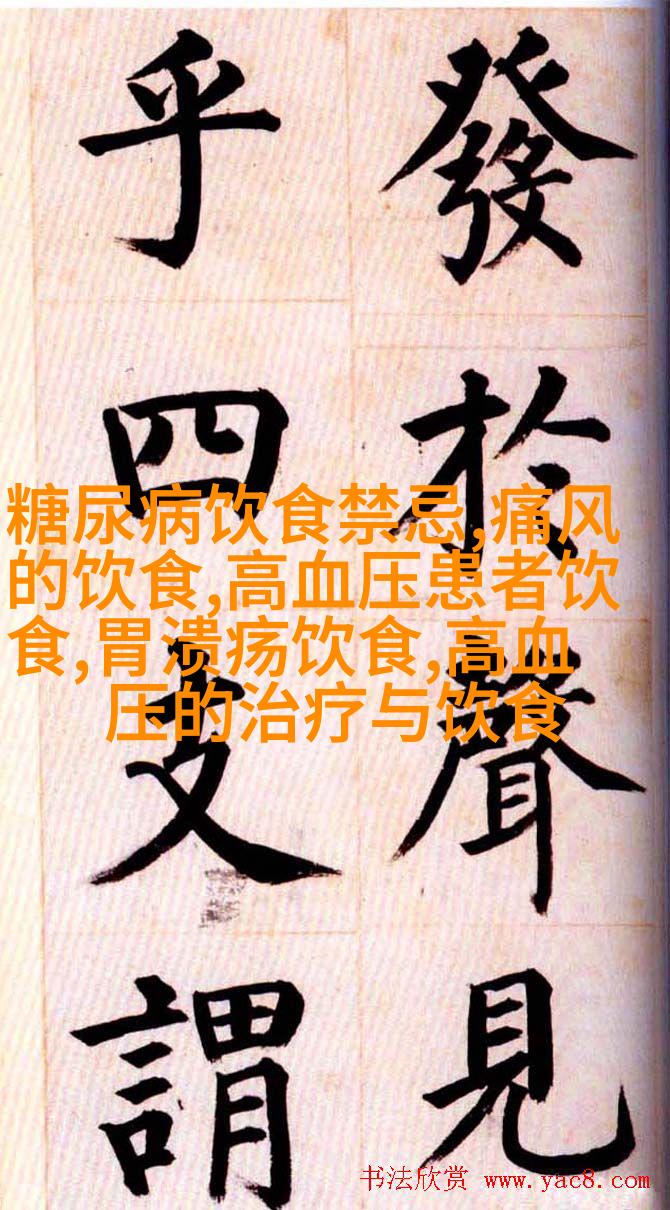 發於聲見
乎四支謂
糖尿病饮食禁忌,痛风
的饮食,高血压患者饮
食,胃溃疡饮食,高血
压的治疗与饮食
书法欣赏 www.yac8.com